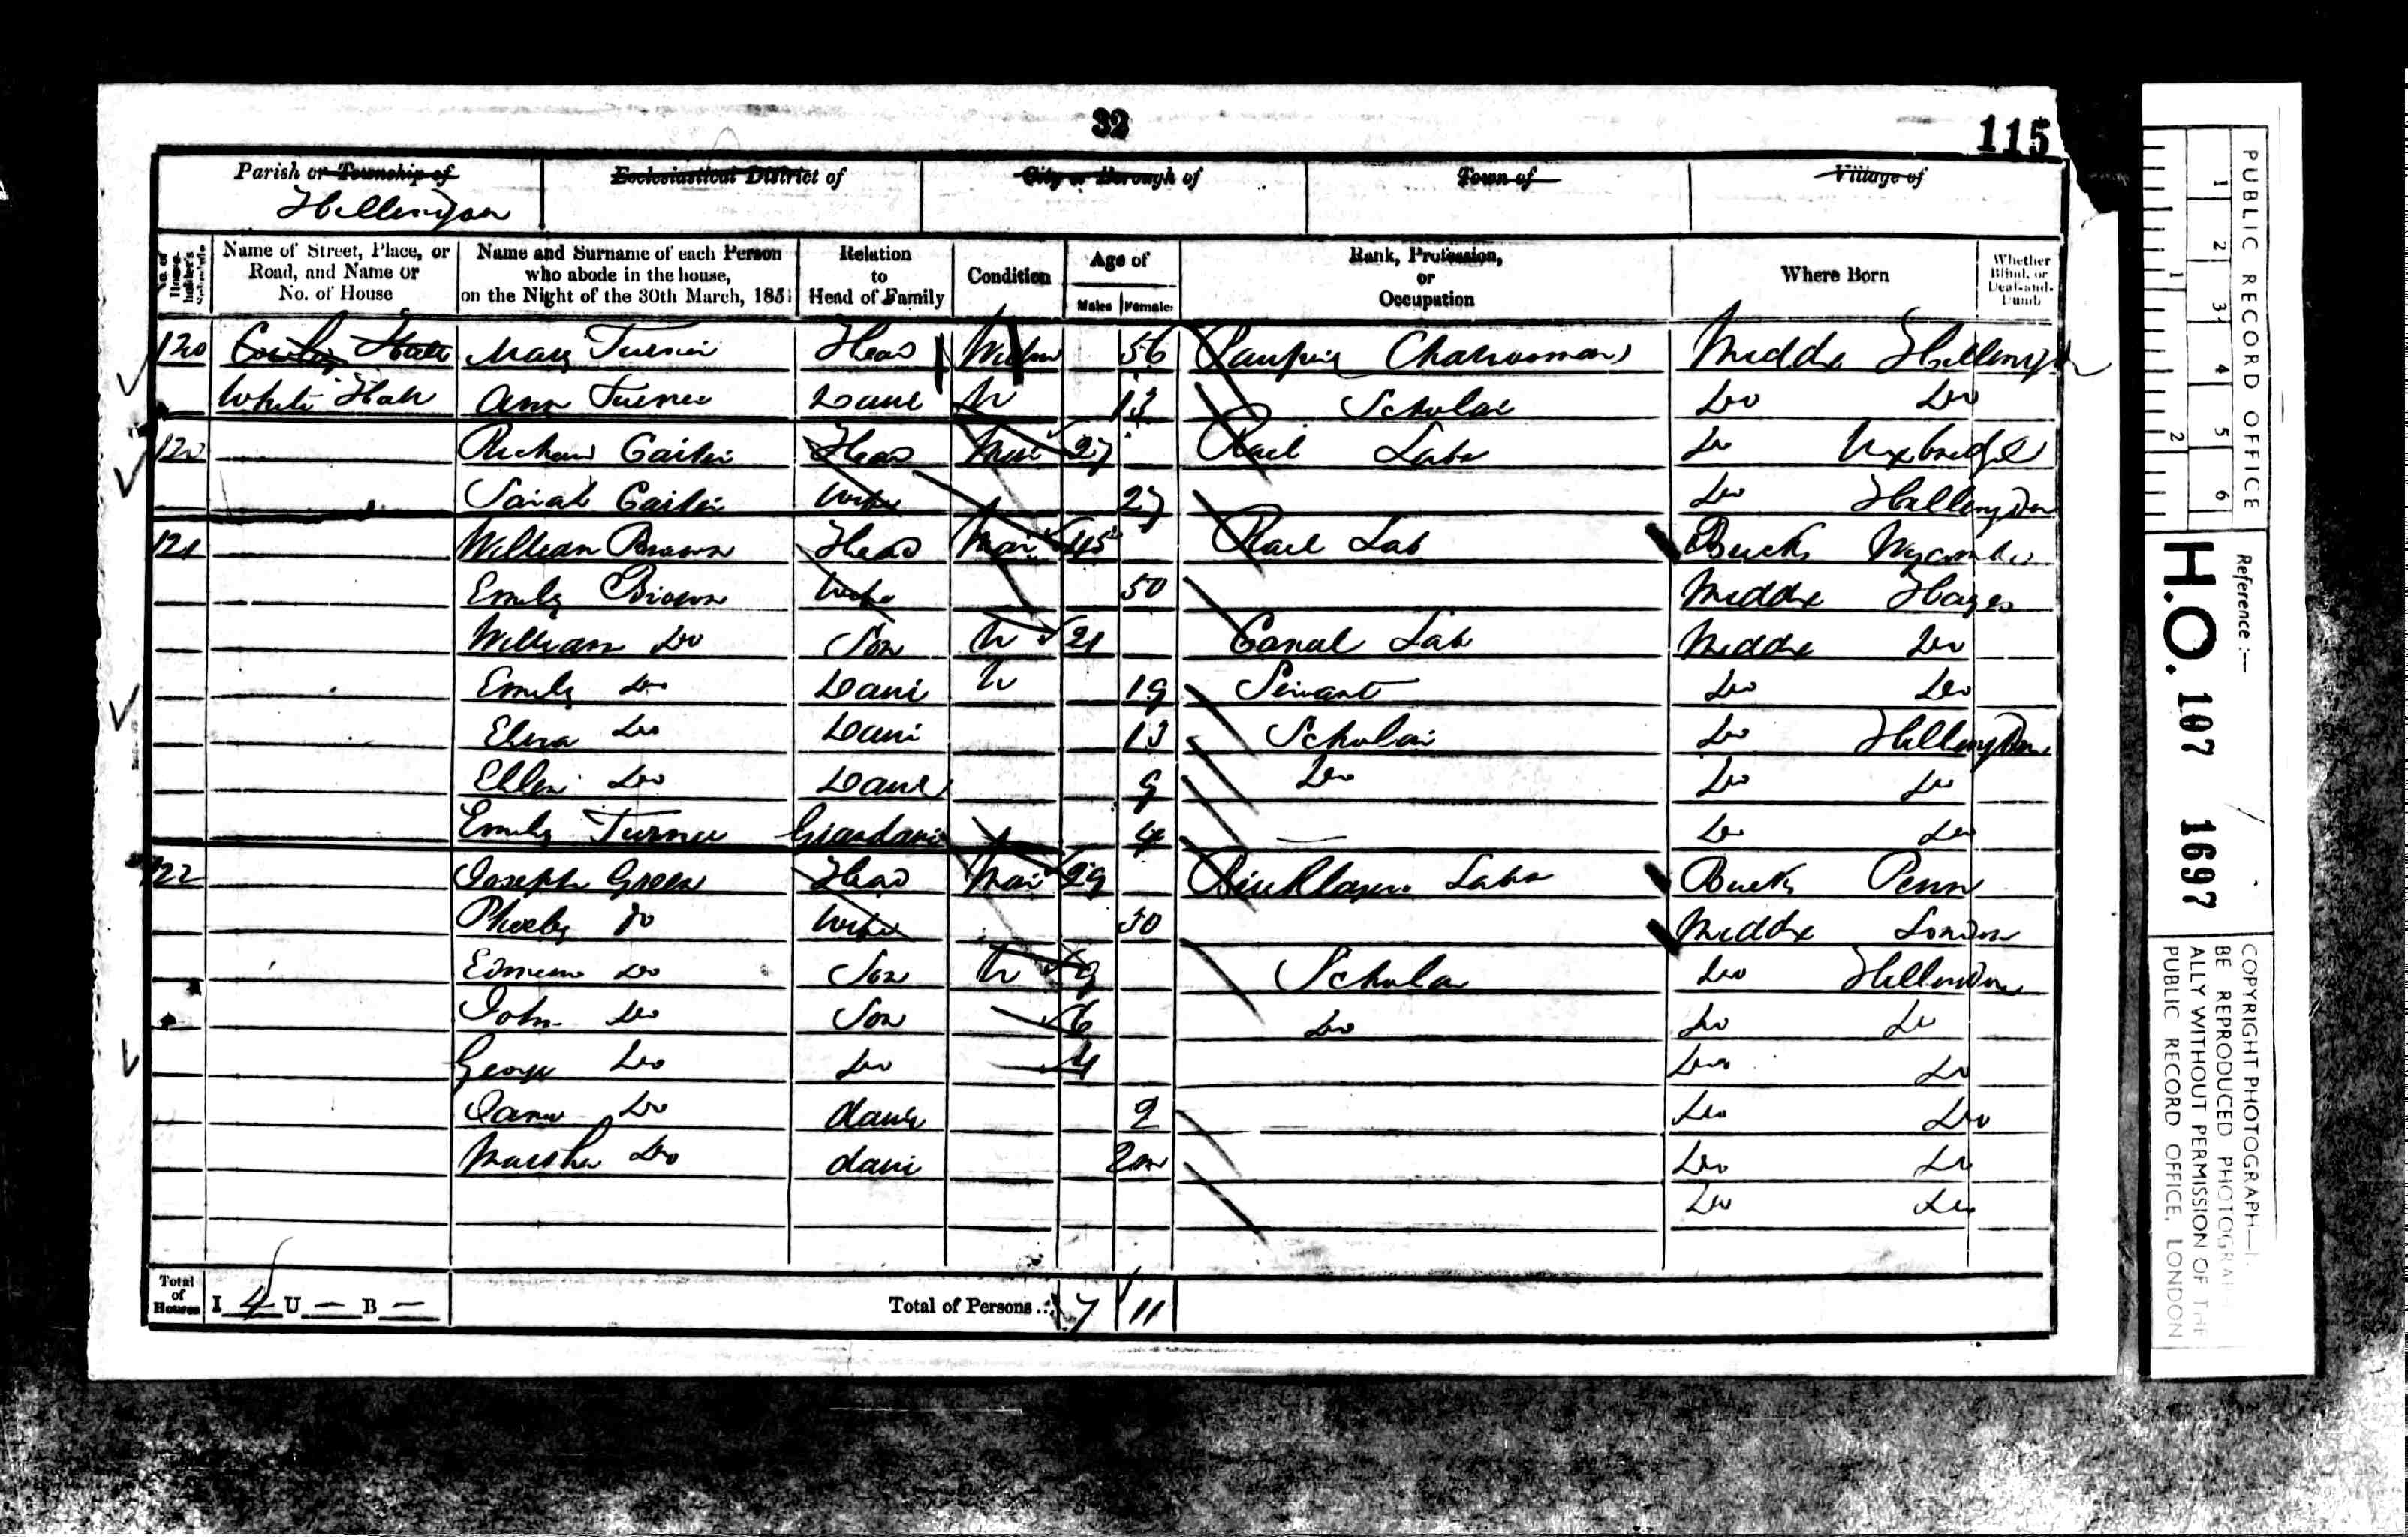 32
115
Parish or Township of
Hillingdon
Ecclesiastical District of
City or Borough of
Town of
Village of
No. of House-holder's Schedule
Name of Street, Place, or Road, and Name or No. of House
Name and Surname of each Person who abode in the house, on the Night of the 30th March, 1851
Relation to Head of Family
Condition
Age of
Males Females
Rank, Profession, or Occupation
Where Born
Whether Blind, or Deaf-and-Dumb
120 Mary Turner Head Widow 56 Pauper Charwoman Middx Hillingdon
White Hall Ann Turner Daur U 13 Scholar Do Do
120 Richard Head Mar 27 Rail Labr Do Uxbridge
Sarah Wife 27 Do Hillingdon
121 William Brown Head Mar 45 Rail Lab Bucks Wycombe
Emily Brown Wife 50 Middx Hayes
William Do Son U 21 Canal Lab Middx Do
Emily Do Daur U 19 Servant Do Do
Do Daur 13 Scholar Do Hillingdon
Ellen Do Daur 9 Do Do Do
Emily Turner Grandaur 4 — Do Do
122 Joseph Green Head Mar 29 Bricklayers Labr Bucks Penn
Phoeby do Wife 30 Middx London
Do Son U 9 Scholar Do Hillindon
John Do Son 6 Do Do Do
George Do Do 4 Do Do
Jane Do daur 2 Do Do
Martha Do daur 2m Do Do
Do Do
Total of Houses I 4 U — B —
Total of Persons 7 11
PUBLIC RECORD OFFICE
1 2 3 4 5 6
1 2
Reference :—
H.O. 107 1697
COPYRIGHT PHOTOGRAPH—
BE REPRODUCED PHOTOGRA
ALLY WITHOUT PERMISSION OF THE
PUBLIC RECORD OFFICE, LONDON